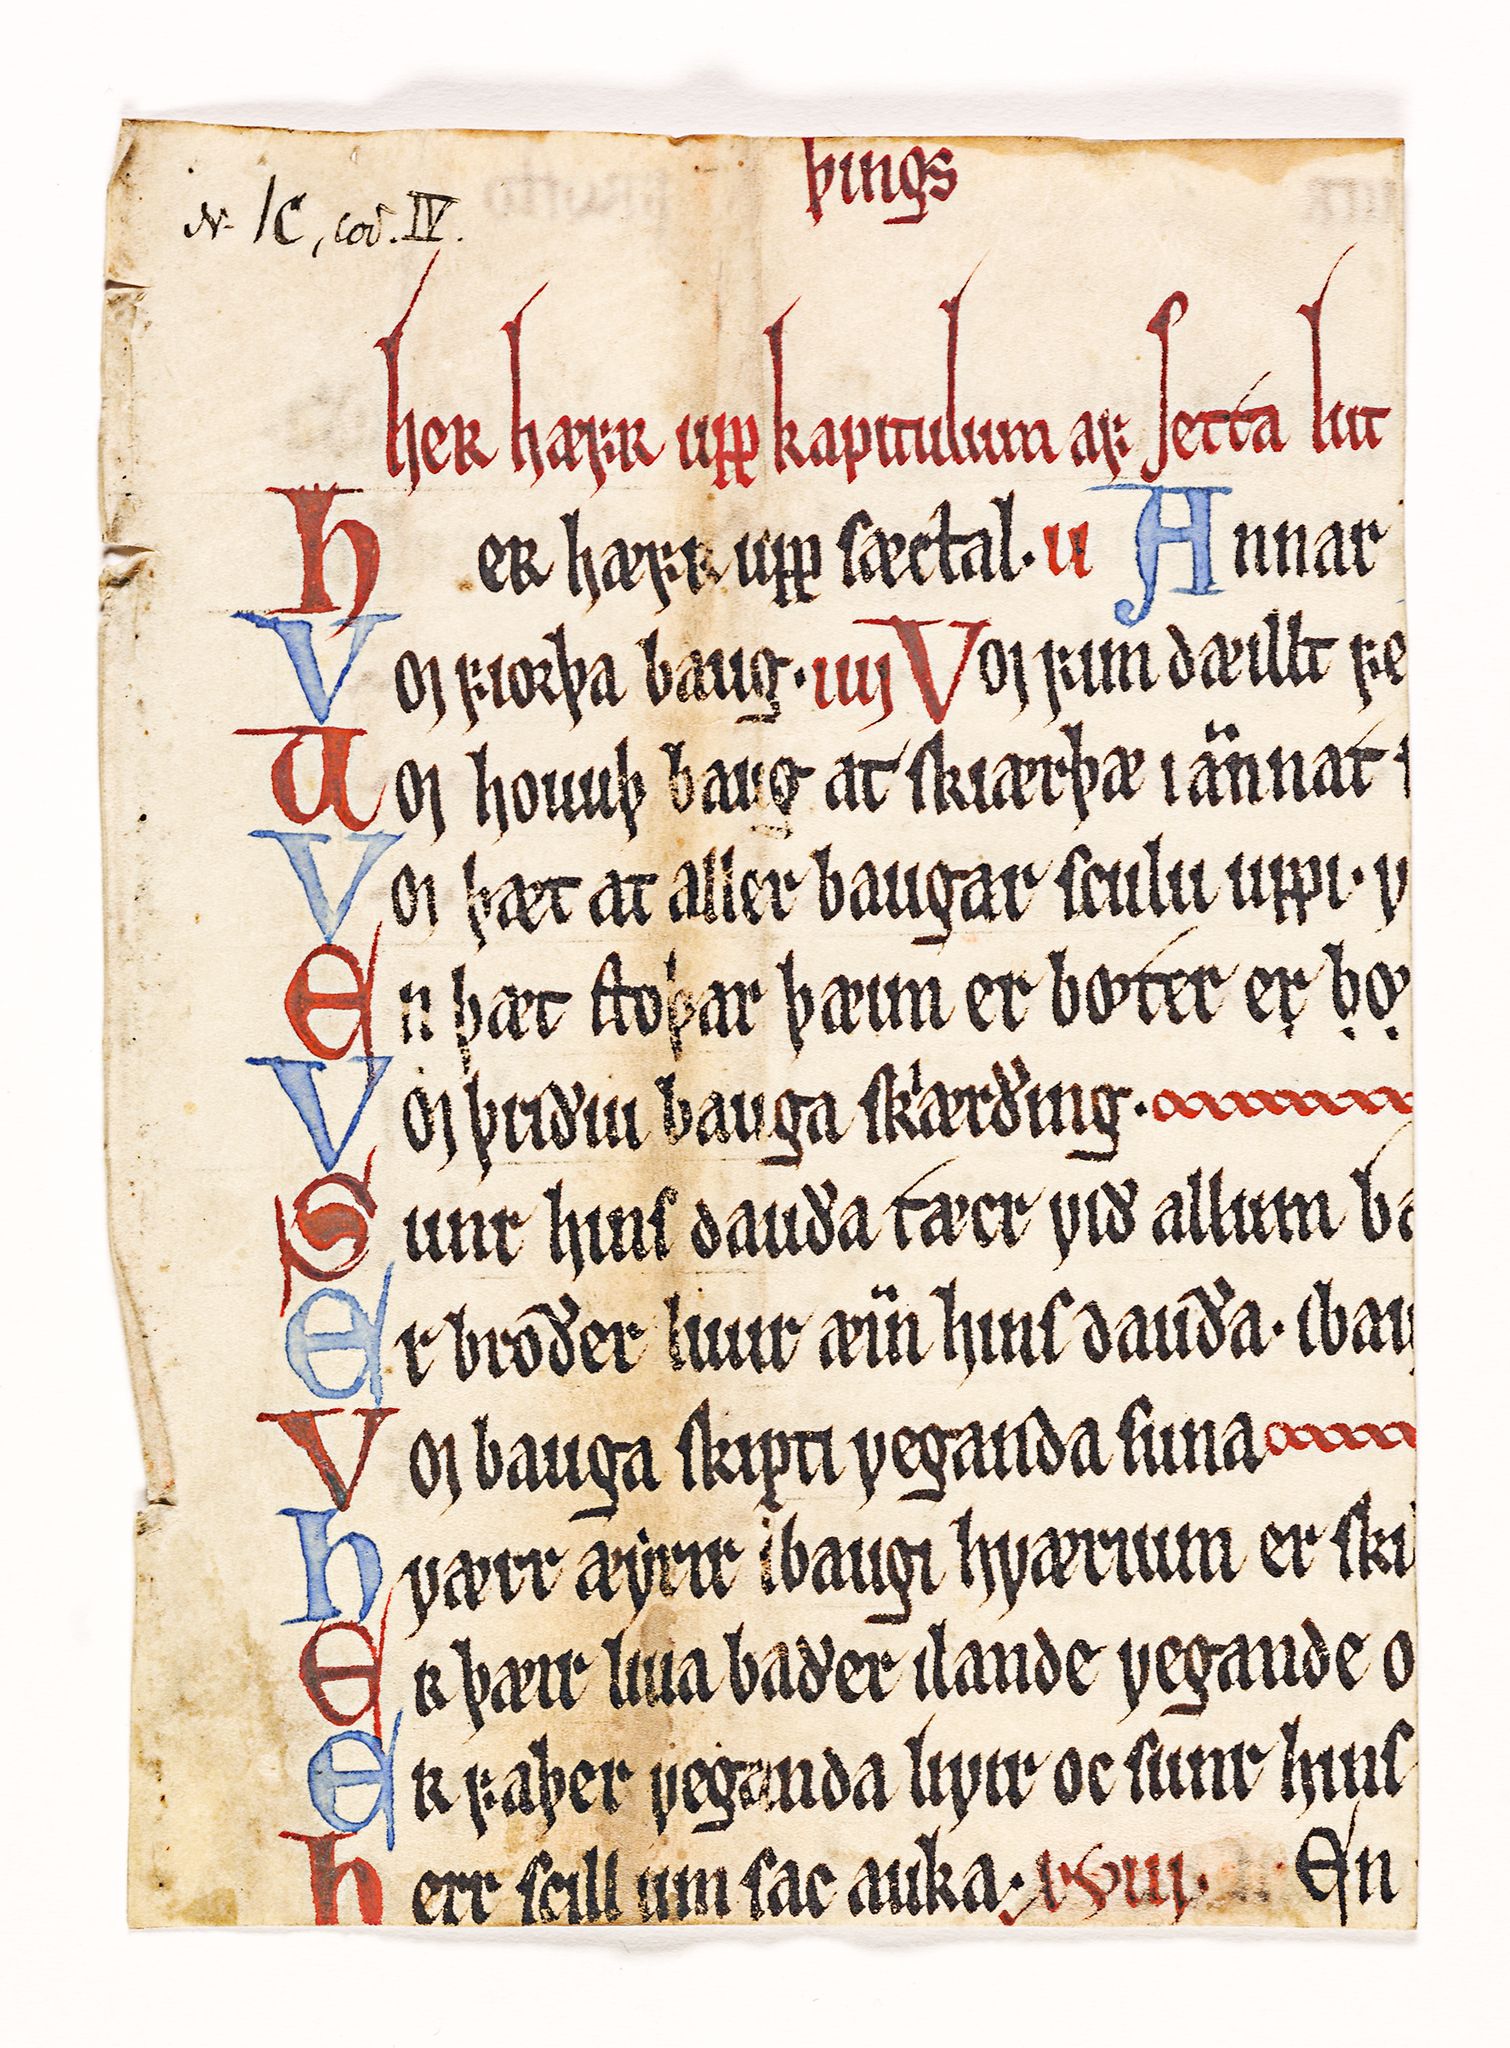 þings
N. 1C, cod. IV.
her hæfR upp kapitulum af setta lut
h eR hæfR upp sæctal. u Annar
Vm fiorþa baug. iiij Vm fim dæillt fe
Um houuþ baug at skiærþæ i ännat
Vm þæt at aller baugar sculu uppi. ƿ
En þæt stoþar þæim er bøter er bø
Vm þriðiu bauga skærðing.
Sunr hins dauða tæcr ƿið allum ba
Er broðer liuir æin hins dauða. ibau
Vm bauga skipti ƿeganda suna
hƿærr æyrir ibaugi hƿærium er ski
ER þæir liua baðer ilande ƿegande o
ER faþer ƿeganda liƿir oc sunr hins
herr scill um sac auka. xviij. En